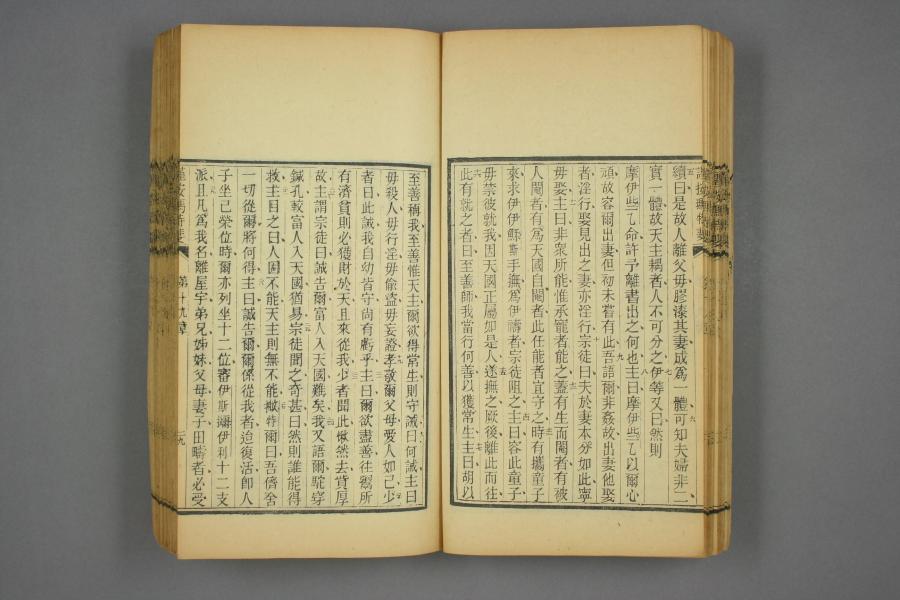 續曰是故人離父毋膠漆其妻成爲一體可知夫婦非二
實一體故天主耦者人不可分之伊等又曰然則
摩伊些乙命許予離書出之何也主曰摩伊些乙以爾心
頑故容爾出妻但初未嘗有此吾語爾非姦故出妻他娶
者淫行娶見出之妻亦淫行宗徒曰夫於妻本分如此寧
毋娶主曰非衆所能惟承寵者能之蓋有生而閹者有被
人閹者有爲天國自閹者此任能者宜守之時有攜童子
來求伊伊穌斯手撫爲伊禱者宗徒阻之主曰容此童子
毋禁彼就我因天國正屬如是人遂撫之厥後離此而往
此有就之者曰至善師我當行何善以獲常生主曰胡以
至善稱我至善惟天主爾欲得常生則守誡曰何誡主曰
毋殺人毋行淫毋偷盜毋妄證孝敬爾父母愛人如己少
者曰此誡我自幼皆守尚有虧乎主曰爾欲盡善往鬻所
有濟貧則必獲財於天且來從我少者聞此愀然去貲厚
故主謂宗徒曰誠告爾富人入天國難矣我又語爾駝穿
鍼孔較富人入天國猶易宗徒聞之奇甚曰然則誰能得
救主目之曰人固不能天主則無不能撇特爾曰吾儕舍
一切從爾將何得主曰誠告爾爾係從我者迨復活卽人
子坐己榮位時爾亦列坐十二位審伊斯爾伊利十二支
派且凡爲我名離屋宇弟兄姊妹父母妻子田疇者必受
第十九章